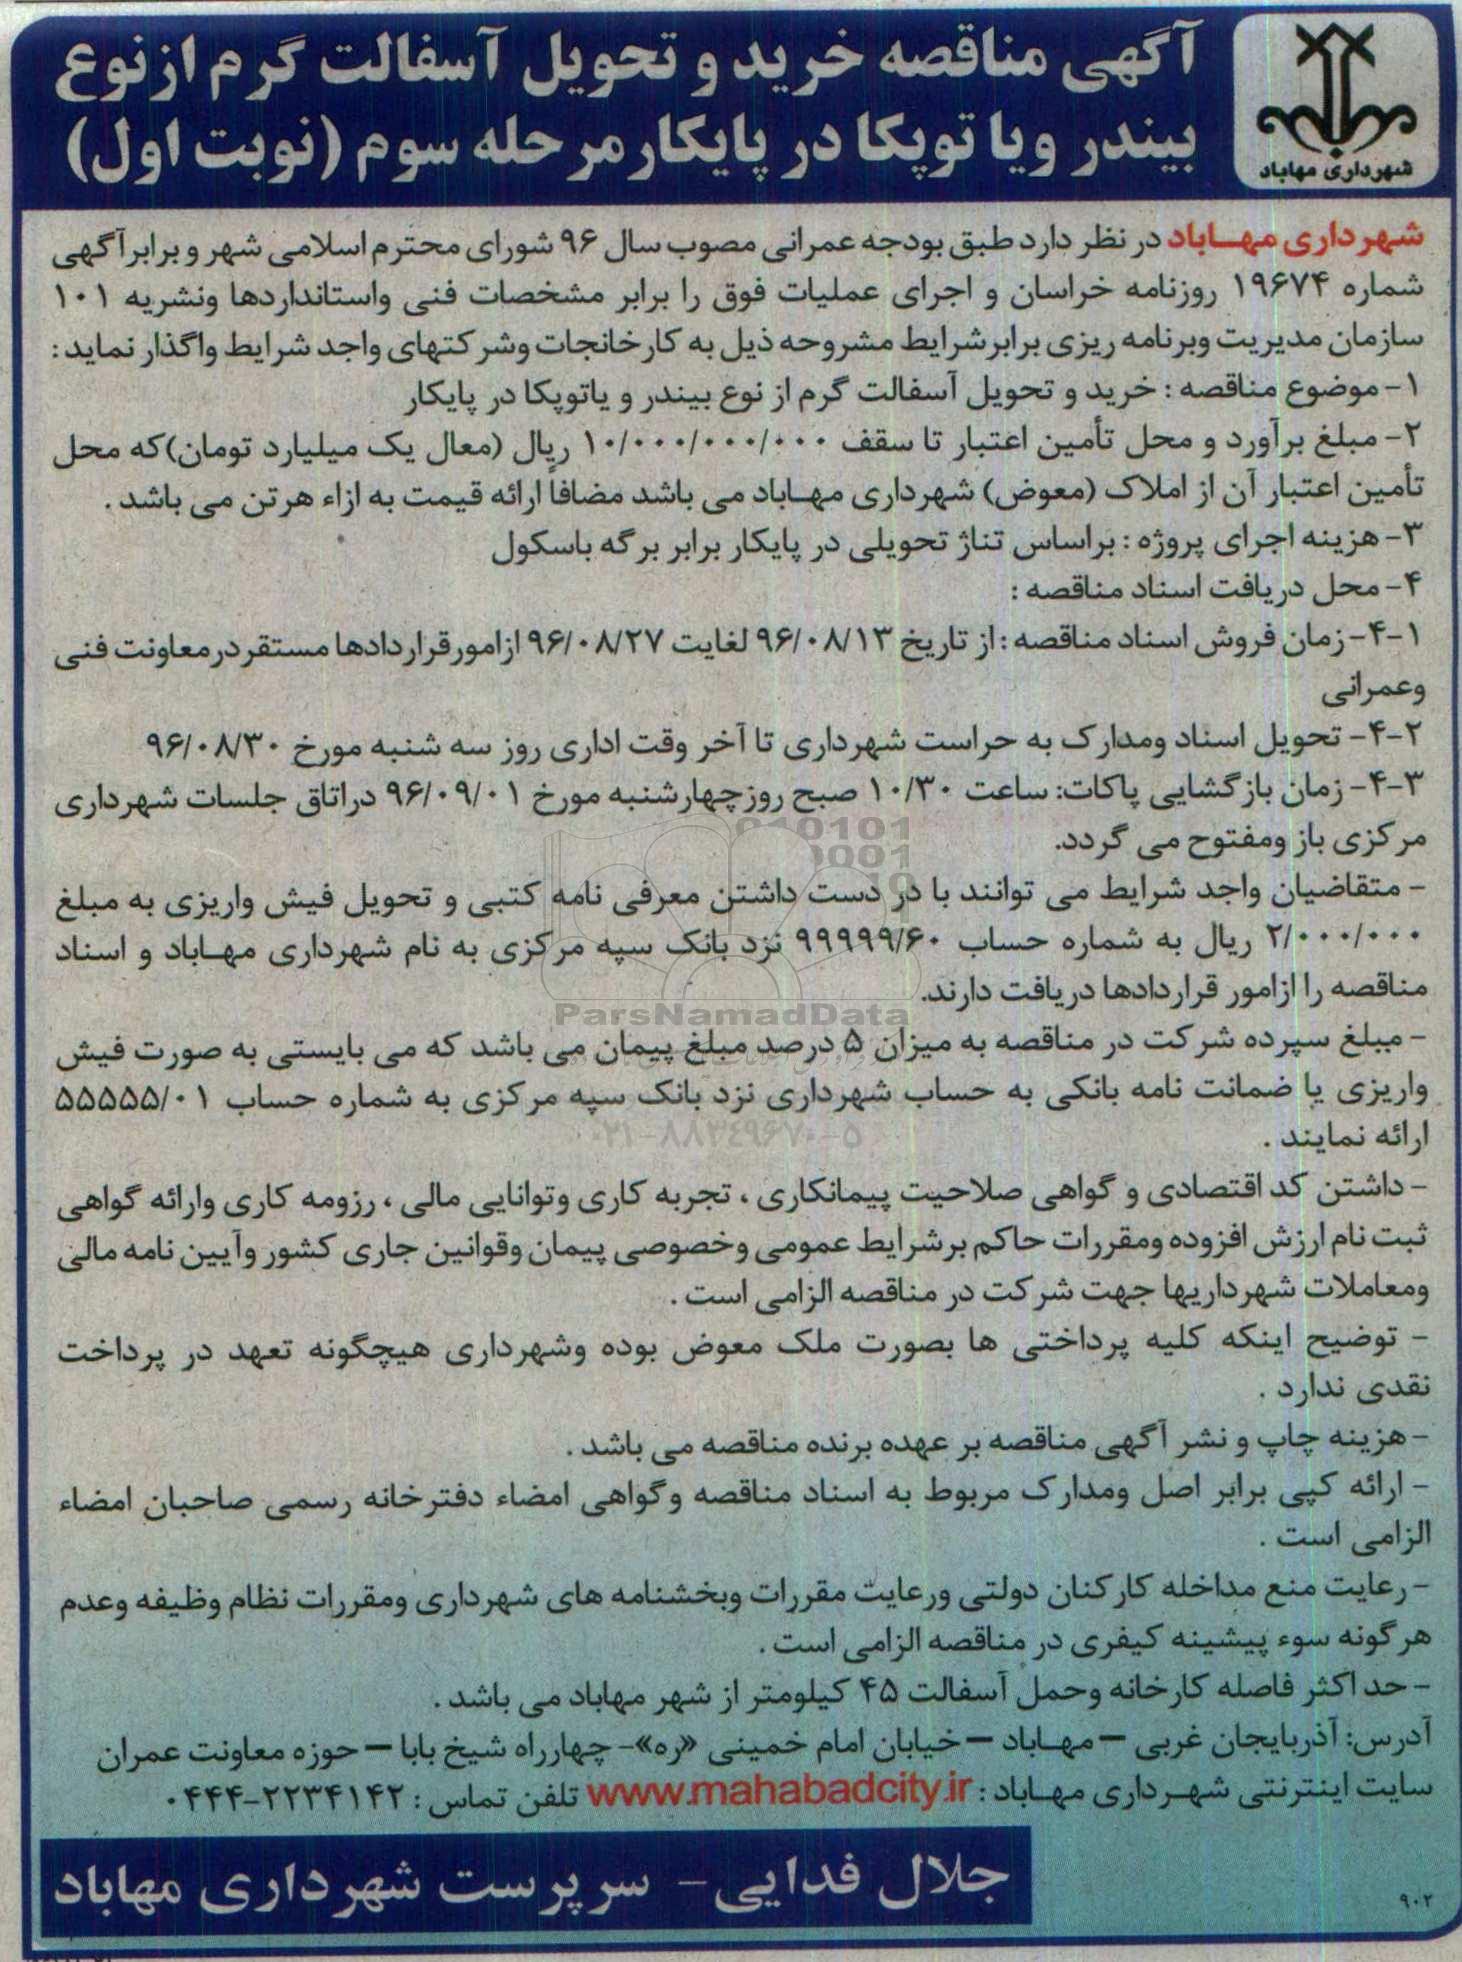 آگهی مناقصه خرید و تحویل آسفالت گرم از نوع
بیندر ویا توپکا در پایکار مرحله سوم (نوبت اول)
شهرداری مهاباد
شهرداری مهـاباد در نظر دارد طبق بودجه عمرانی مصوب سال ۹۶ شورای محترم اسلامی شهر و برابر آگهی
شماره ۱۹۶۷۴ روزنامه خراسان و اجرای عملیات فوق را برابر مشخصات فنی واستانداردها ونشریه ۱۰۱
سازمان مدیریت وبرنامه ریزی برابرشرایط مشروحه ذیل به کارخانجات وشرکتهای واجد شرایط واگذار نماید:
۱- موضوع مناقصه : خرید و تحویل آسفالت گرم از نوع بیندر و یاتوپکا در پایکار
۲- مبلغ برآورد و محل تأمین اعتبار تا سقف ۱۰/۰۰۰/۰۰۰/۰۰۰ ریال (معال یک میلیارد تومان)که محل
تأمین اعتبار آن از املاک (معوض) شهرداری مهـاباد می باشد مضافاً ارائه قیمت به ازاء هرتن می باشد .
۳- هزینه اجرای پروژه : براساس تناژ تحویلی در پایکار برابر برگه باسکول
۴- محل دریافت اسناد مناقصه :
۴-۱- زمان فروش اسناد مناقصه : از تاریخ ۹۶/۰۸/۱۳ لغایت ۹۶/۰۸/۲۷ ازامورقراردادها مستقردرمعاونت فنی
وعمرانی
۴-۲- تحویل اسناد ومدارک به حراست شهرداری تا آخر وقت اداری روز سه شنبه مورخ ۹۶/۰۸/۳۰
۴-۳- زمان بازگشایی پاکات: ساعت ۱۰/۳۰ صبح روزچهارشنبه مورخ ۹۶/۰۹/۰۱ دراتاق جلسات شهرداری
مرکزی باز ومفتوح می گردد.
- متقاضیان واجد شرایط می توانند با در دست داشتن معرفی نامه کتبی و تحویل فیش واریزی به مبلغ
۲/۰۰۰/۰۰۰ ریال به شماره حساب ۹۹۹۹۹/۶۰ نزد بانک سپه مرکزی به نام شهرداری مهـاباد و اسناد
مناقصه را ازامور قراردادها دریافت دارند.
ParsNamadData
- مبلغ سپرده شرکت در مناقصه به میزان ۵ درصد مبلغ پیمان می باشد که می بایستی به صورت فیش
واریزی یا ضمانت نامه بانکی به حساب شهرداری نزد بانک سپه مرکزی به شماره حساب ۵۵۵۵۵/۰۱
۰۲۱-۸۸۳۴۹۶۷۰-۵
ارائه نمایند .
- داشتن کد اقتصادی و گواهی صلاحیت پیمانکاری ، تجربه کاری وتوانایی مالی ، رزومه کاری وارائه گواهی
ثبت نام ارزش افزوده ومقررات حاکم برشرایط عمومی وخصوصی پیمان وقوانین جاری کشور وآیین نامه مالی
ومعاملات شهرداریها جهت شرکت در مناقصه الزامی است .
- توضیح اینکه کلیه پرداختی ها بصورت ملک معوض بوده وشهرداری هیچگونه تعهد در پرداخت
نقدی ندارد .
- هزینه چاپ و نشر آگهی مناقصه بر عهده برنده مناقصه می باشد .
- ارائه کپی برابر اصل ومدارک مربوط به اسناد مناقصه وگواهی امضاء دفترخانه رسمی صاحبان امضاء
الزامی است .
- رعایت منع مداخله کارکنان دولتی ورعایت مقررات وبخشنامه های شهرداری ومقررات نظام وظیفه وعدم
هرگونه سوء پیشینه کیفری در مناقصه الزامی است .
- حداکثر فاصله کارخانه وحمل آسفالت ۴۵ کیلومتر از شهر مهاباد می باشد .
آدرس: آذربایجان غربی – مهـاباد – خیابان امام خمینی «ره»- چهارراه شیخ بابا – حوزه معاونت عمران
سایت اینترنتی شهـرداری مهـاباد : www.mahabadcity.ir تلفن تماس : ۰۴۴۴-۲۲۳۴۱۴۲
جلال فدایی - سرپرست شهرداری مهاباد
۹۰۲